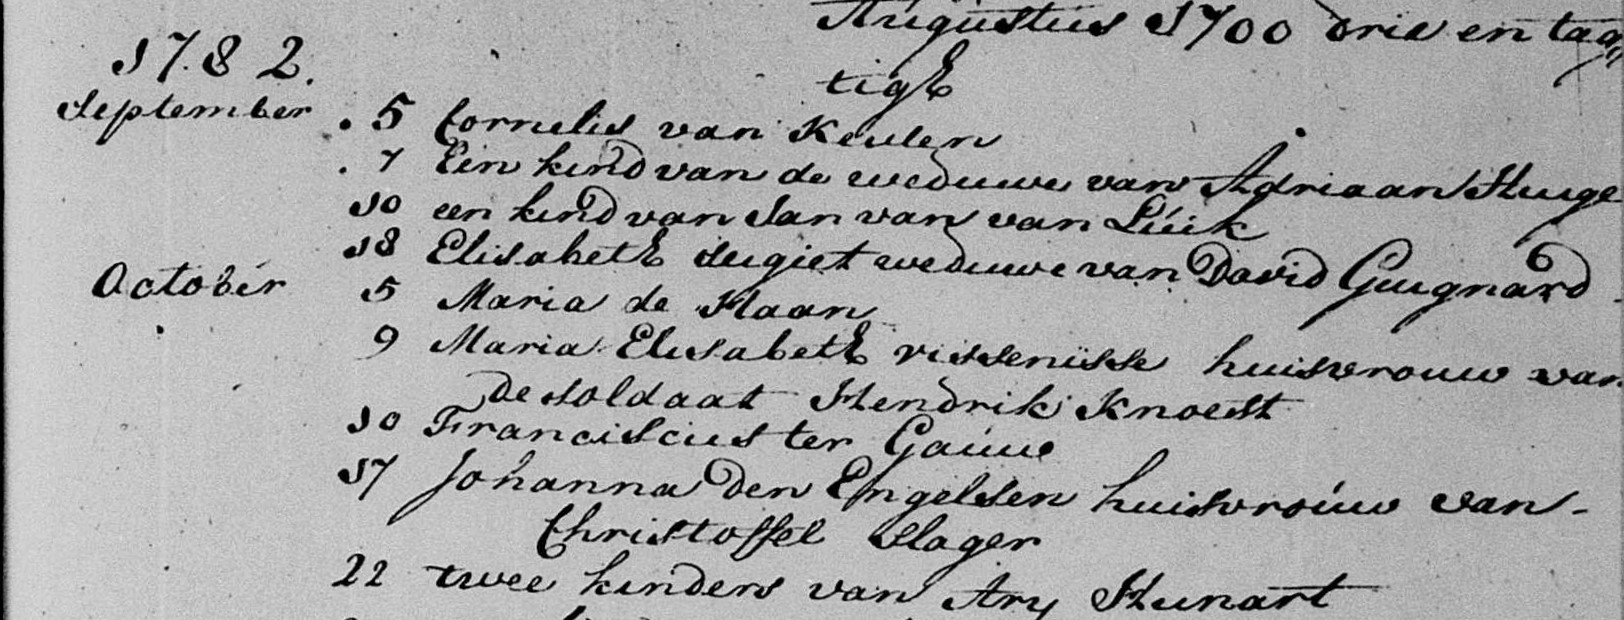 Augustus 1700 drie en tag
tigh
1782.
September . 5 Cornelis van Keulen
. 7 Een kind van de weduwe van Adriaan Huge
10 een kind van Jan van van Luik
18 Elisabeth Sugiet weduwe van David Guignard
October 5 Maria de Haan
9 Maria Elisabeth vissenisse huisvrouw van
de soldaat Hendrik Knoest
10 Franciscus ter Gauw
17 Johanna den Engelsen huisvrouw van -
Christoffel Slager
22 twee kinders van Ary Hunart